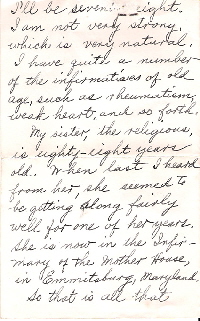 I'll be seventy-eight.
I am not very strong,
which is very natural.
I have quite a number
of the infirmities of old
age, such as rheumatism,
weak heart, and so forth.
My sister, the religious,
is eighty-eight years
old. When last I heard
from her, she seemed to
be getting along fairly
well for one of her years.
She is now in the Infir-
mary of the Mother House,
in Emmitsburg, Maryland.
So that is all that